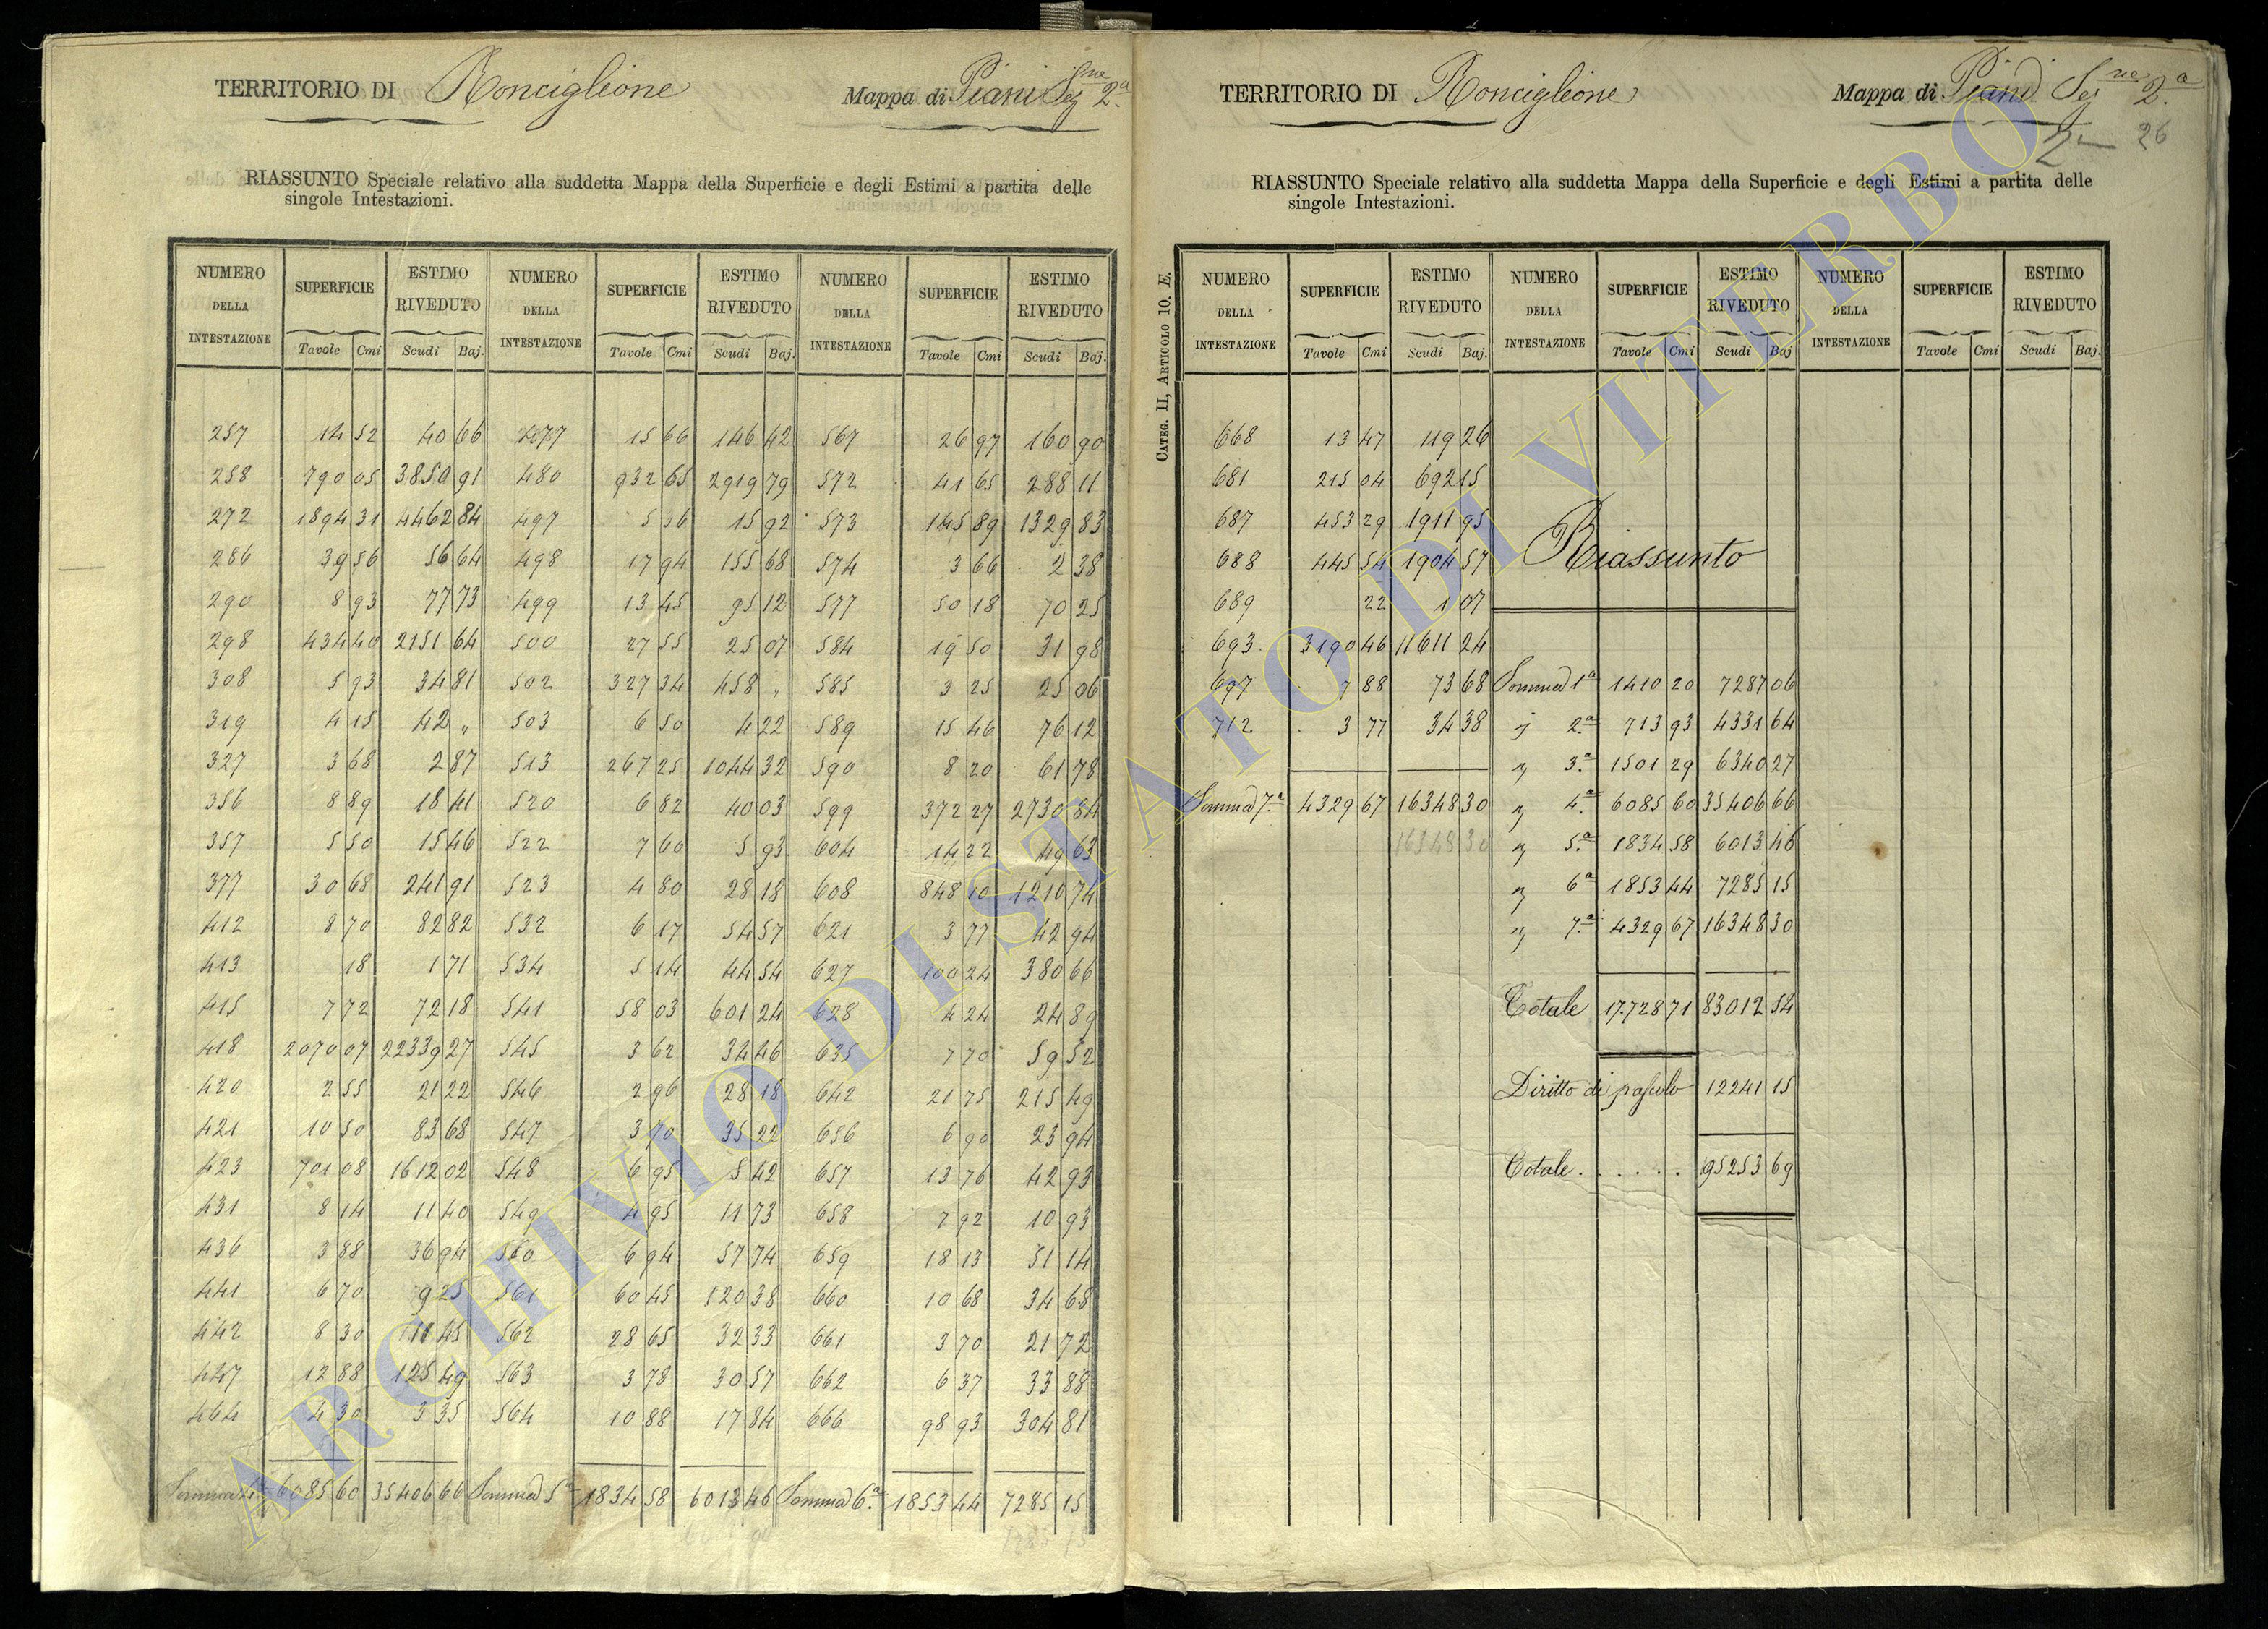 TERRITORIO DI Ronciglione Mappa di Piani Sez.ne 2.a
RIASSUNTO Speciale relativo alla suddetta Mappa della Superficie e degli Estimi a partita delle
singole Intestazioni.
NUMERO DELLA INTESTAZIONE SUPERFICIE ESTIMO RIVEDUTO NUMERO DELLA INTESTAZIONE SUPERFICIE ESTIMO RIVEDUTO NUMERO DELLA INTESTAZIONE SUPERFICIE ESTIMO RIVEDUTO
Tavole Cmi Scudi Baj. Tavole Cmi Scudi Baj. Tavole Cmi Scudi Baj.
257 14 52 40 66 477 15 66 146 42 567 26 97 160 90
258 790 05 3850 91 480 932 65 2919 79 572 41 65 288 11
272 1894 31 4462 84 497 5 36 15 92 573 145 89 1329 83
286 39 56 56 64 498 17 94 155 68 574 3 66 2 38
290 8 93 77 73 499 13 45 95 12 577 50 18 70 25
298 434 40 2151 64 500 27 55 25 07 584 19 50 31 98
308 5 93 34 81 502 327 34 458 „ 585 3 25 25 06
319 4 15 42 „ 503 6 50 4 22 589 15 46 76 12
327 3 68 2 87 513 267 25 1044 32 590 8 20 61 78
356 8 89 18 41 520 6 82 40 03 599 372 27 2730 84
357 5 50 15 46 522 7 60 5 93 604 14 22 49 63
377 30 68 241 91 523 4 80 28 18 608 848 10 1210 74
412 8 70 82 82 532 6 17 54 57 621 3 77 42 94
413 18 1 71 534 5 14 44 54 627 100 24 380 66
415 7 72 72 18 541 58 03 601 24 628 4 24 24 89
418 2070 07 22339 27 545 3 62 34 46 635 7 70 59 52
420 2 55 21 22 546 2 96 28 18 642 21 75 215 49
421 10 50 83 68 547 3 70 35 22 656 6 90 23 94
423 701 08 1612 02 548 6 95 5 42 657 13 76 42 93
431 8 14 11 40 549 4 95 11 73 658 7 92 10 93
436 3 88 36 94 560 6 94 57 74 659 18 13 51 14
441 6 70 9 25 561 60 45 120 38 660 10 68 34 68
442 8 30 11 45 562 28 65 32 33 661 3 70 21 72
447 12 88 125 49 563 3 78 30 57 662 6 37 33 88
464 4 30 3 35 564 10 88 17 84 666 98 93 304 81
Somma 4.a 6085 60 35406 66 Somma 5.a 1834 58 6013 46 Somma 6.a 1853 44 7285 15
7285 15
TERRITORIO DI Ronciglione Mappa di Piani Sez.ne 2.a
2 26
RIASSUNTO Speciale relativo alla suddetta Mappa della Superficie e degli Estimi a partita delle
singole Intestazioni.
CATEG. II, ARTICOLO 10. E.
NUMERO DELLA INTESTAZIONE SUPERFICIE ESTIMO RIVEDUTO NUMERO DELLA INTESTAZIONE SUPERFICIE ESTIMO RIVEDUTO NUMERO DELLA INTESTAZIONE SUPERFICIE ESTIMO RIVEDUTO
Tavole Cmi Scudi Baj. Tavole Cmi Scudi Baj Tavole Cmi Scudi Baj.
668 13 47 119 26
681 215 04 692 15
687 453 29 1911 95
688 445 54 1904 57 Riassunto
689 22 1 07
693. 3190 46 11611 24
697 7 88 73 68 Somma 1a 1410 20 7287 06
712 3 77 34 38 „ 2.a 713 93 4331 64
„ 3.a 1501 29 6340 27
Somma 7.a 4329 67 16348 30 „ 4.a 6085 60 35406 66
16348 30 „ 5.a 1834 58 6013 46
„ 6a 1853 44 7285 15
„ 7.a 4329 67 16348 30
Totale 17728 71 83012 54
Diritto di pascolo 12241 15
Totale . . . . . . 95253 69
ARCHIVIO DI STATO DI VITERBO